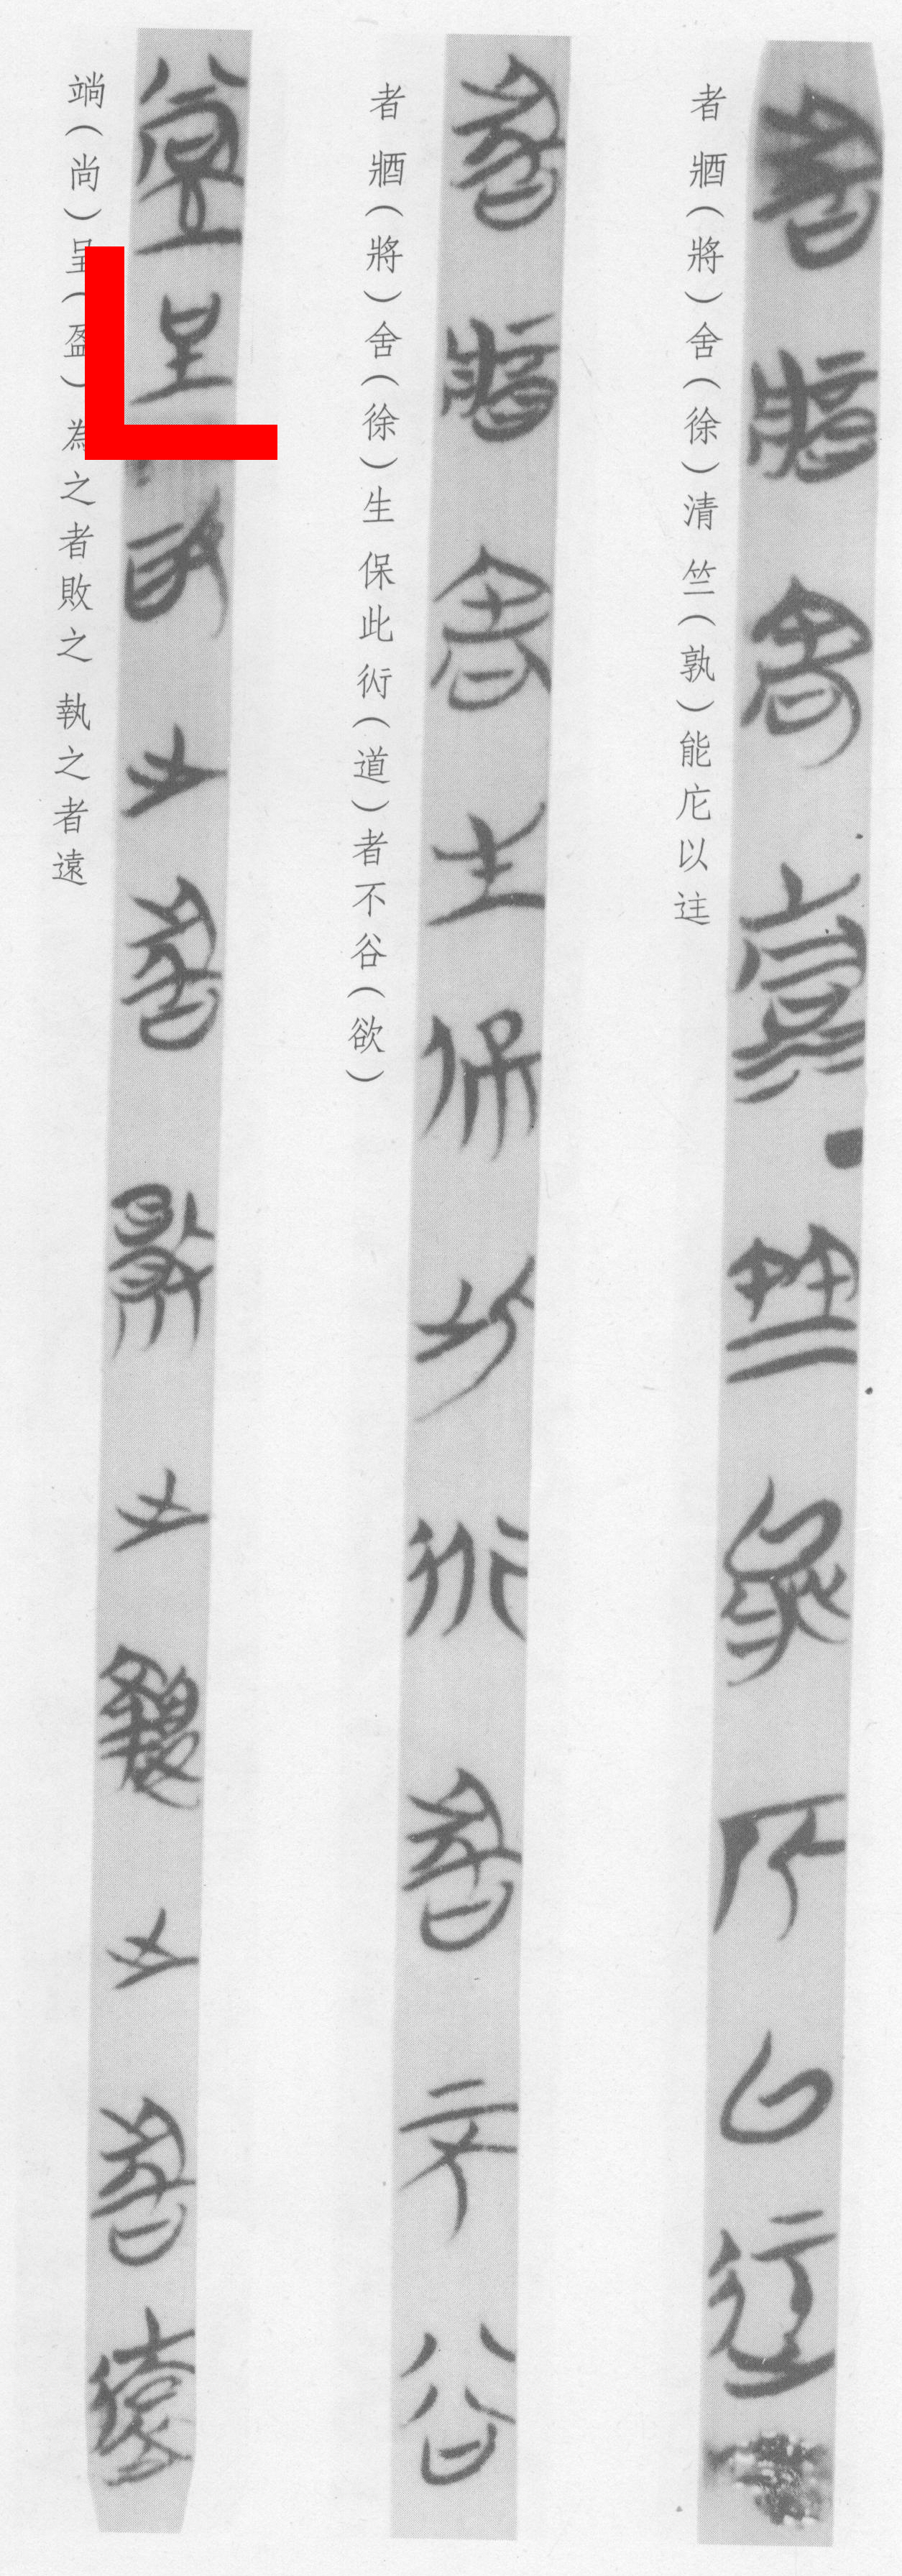 者𤖕(將)舍(徐)清竺(孰)能庀以迬
者𤖕(將)舍(徐)生保此衍(道)者不谷(欲)
(尚)呈(盈)為之者敗之執之者遠